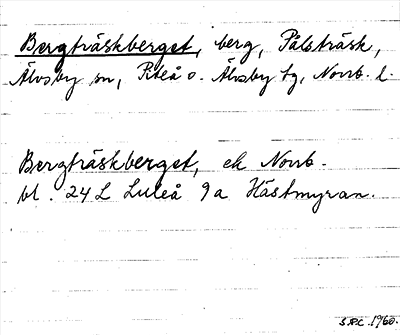 Bergträskberget, berg, Pålsträsk,
Älvsby sn, Piteå o. Älvsby tg, Norrb. l.
Bergträskberget, ek Norrb.
bl. 24 L Luleå 9a Hästmyran.
S.P.C. 1960.